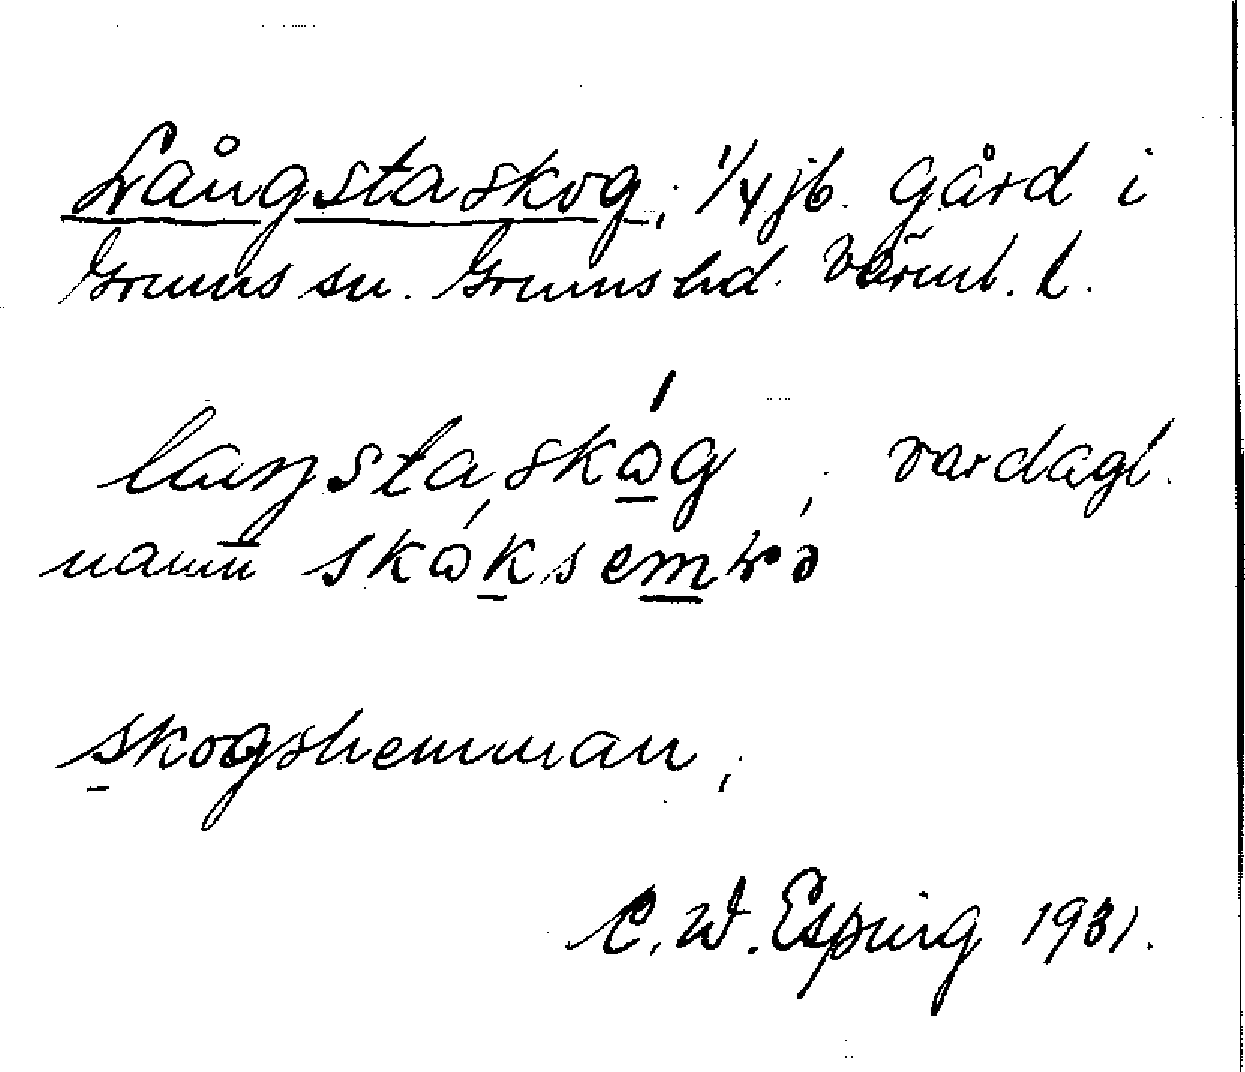 Långstaskog; 1/4 jb. gård i
Grums sn. Grums hd. Värml. l.
laŋstaskɷ́g ; vardagl.
namn skɷ́ksemrə
skogshemman;
C. W. Esping 1931.